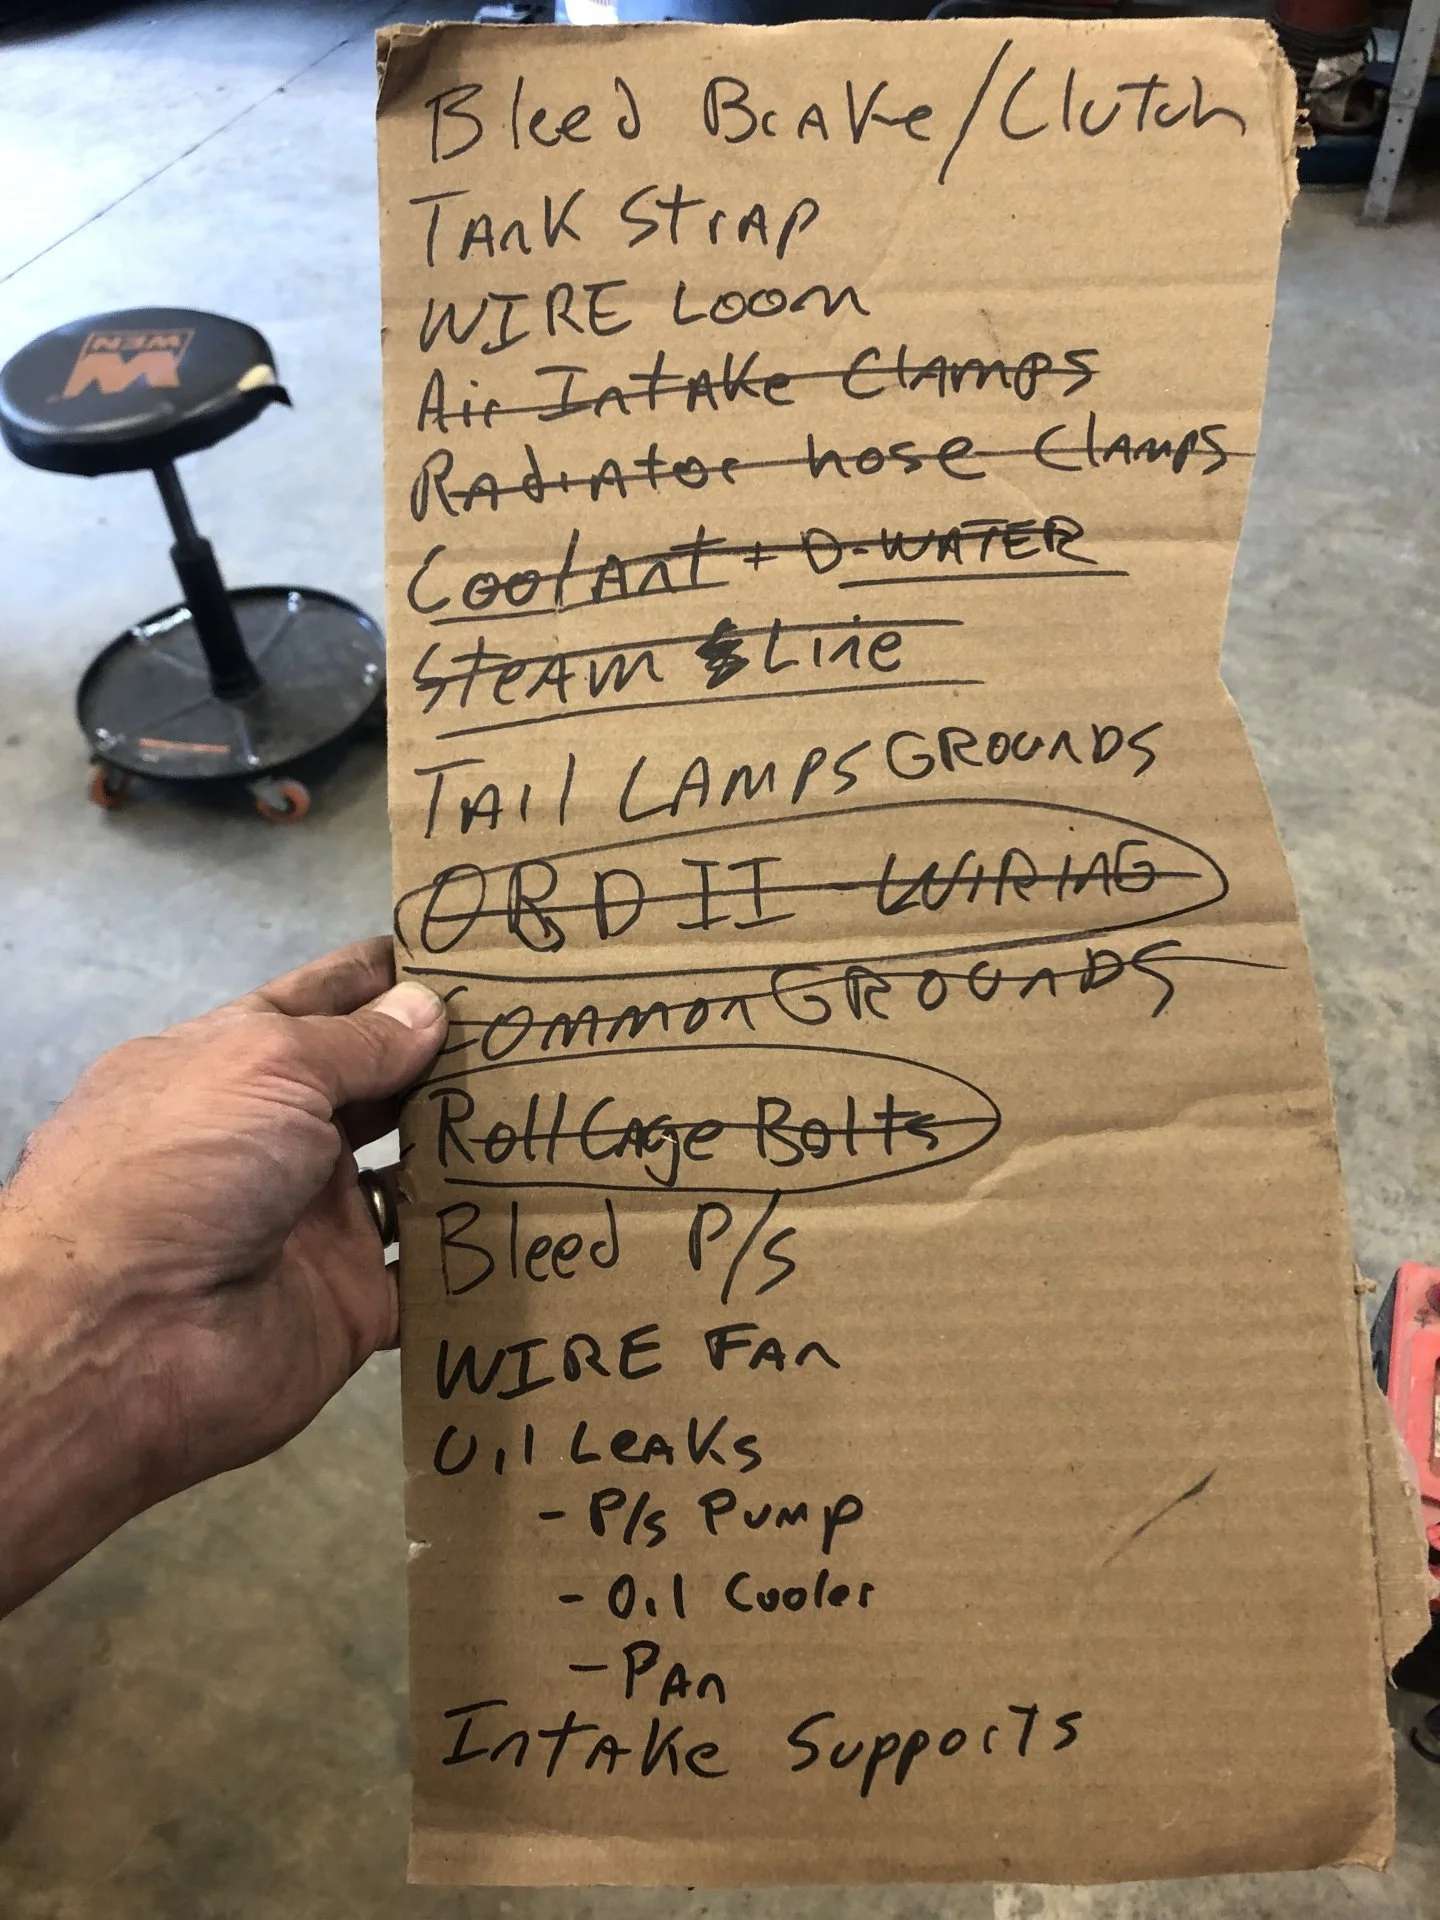 WEN
Bleed Brake/Clutch
TANK STrAP
WIRE LOOM
Air Intake Clamps
Radiator hose Clamps
Coolant + D-WATER
Steam Line
TAIL LAMPS GROUNDS
OBD II - WIRING
COMMON GROUNDS
Roll Cage Bolts
Bleed P/S
WIRE FAN
Oil Leaks
- P/S Pump
- Oil Cooler
- PAN
Intake Supports